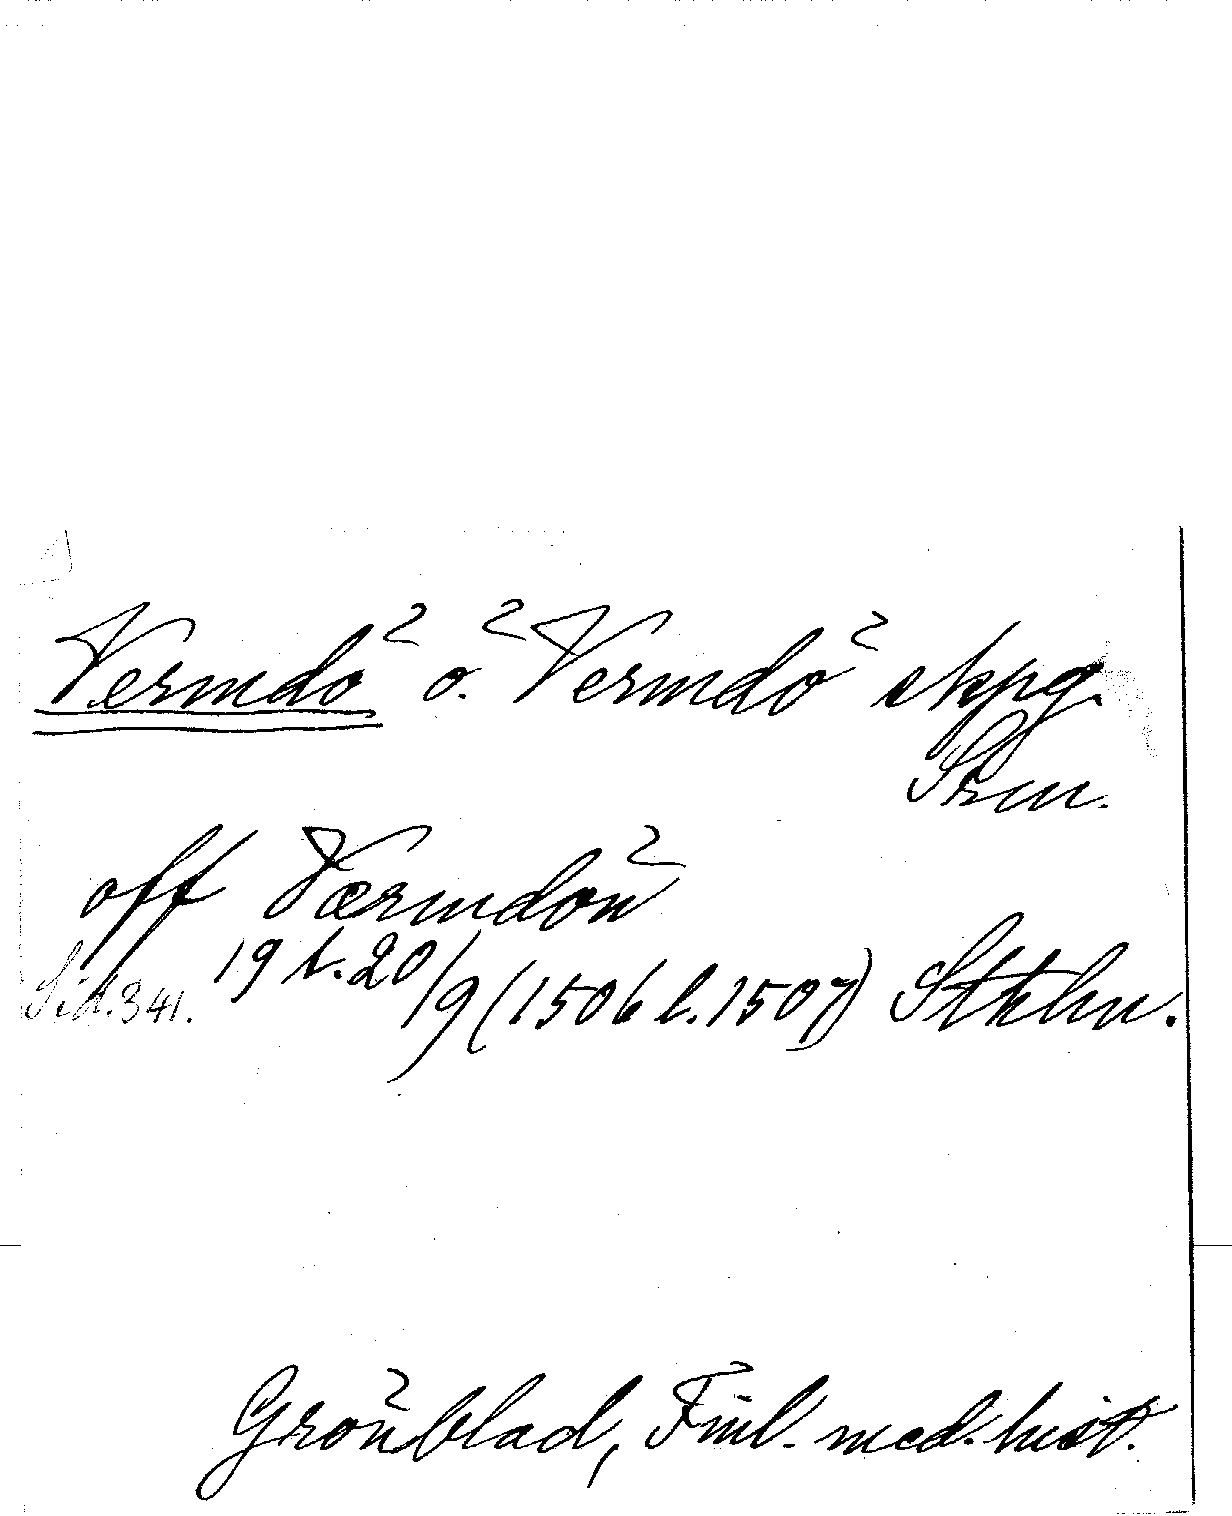 Vermdö o. Vermdö skpg.
Srm.
off Værmdön
Sid. 341. 19 l. 20/9 (1506 l. 1507) Sthlm.
Grönblad, Finl. med. hist.